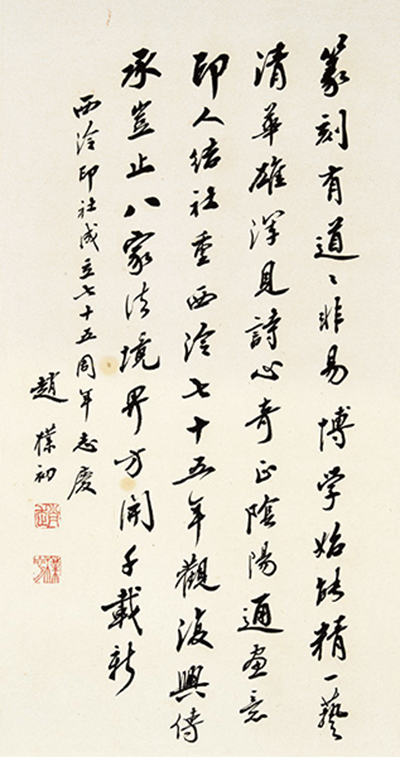 篆刻有道道〻非易博学始能精一藝
清華雄渾見詩心奇正陰陽通画意
印人结社重西泠七十五年觀復興传
承豈止八家法境界方開千載新
西泠印社成立七十五周年志慶
趙樸初